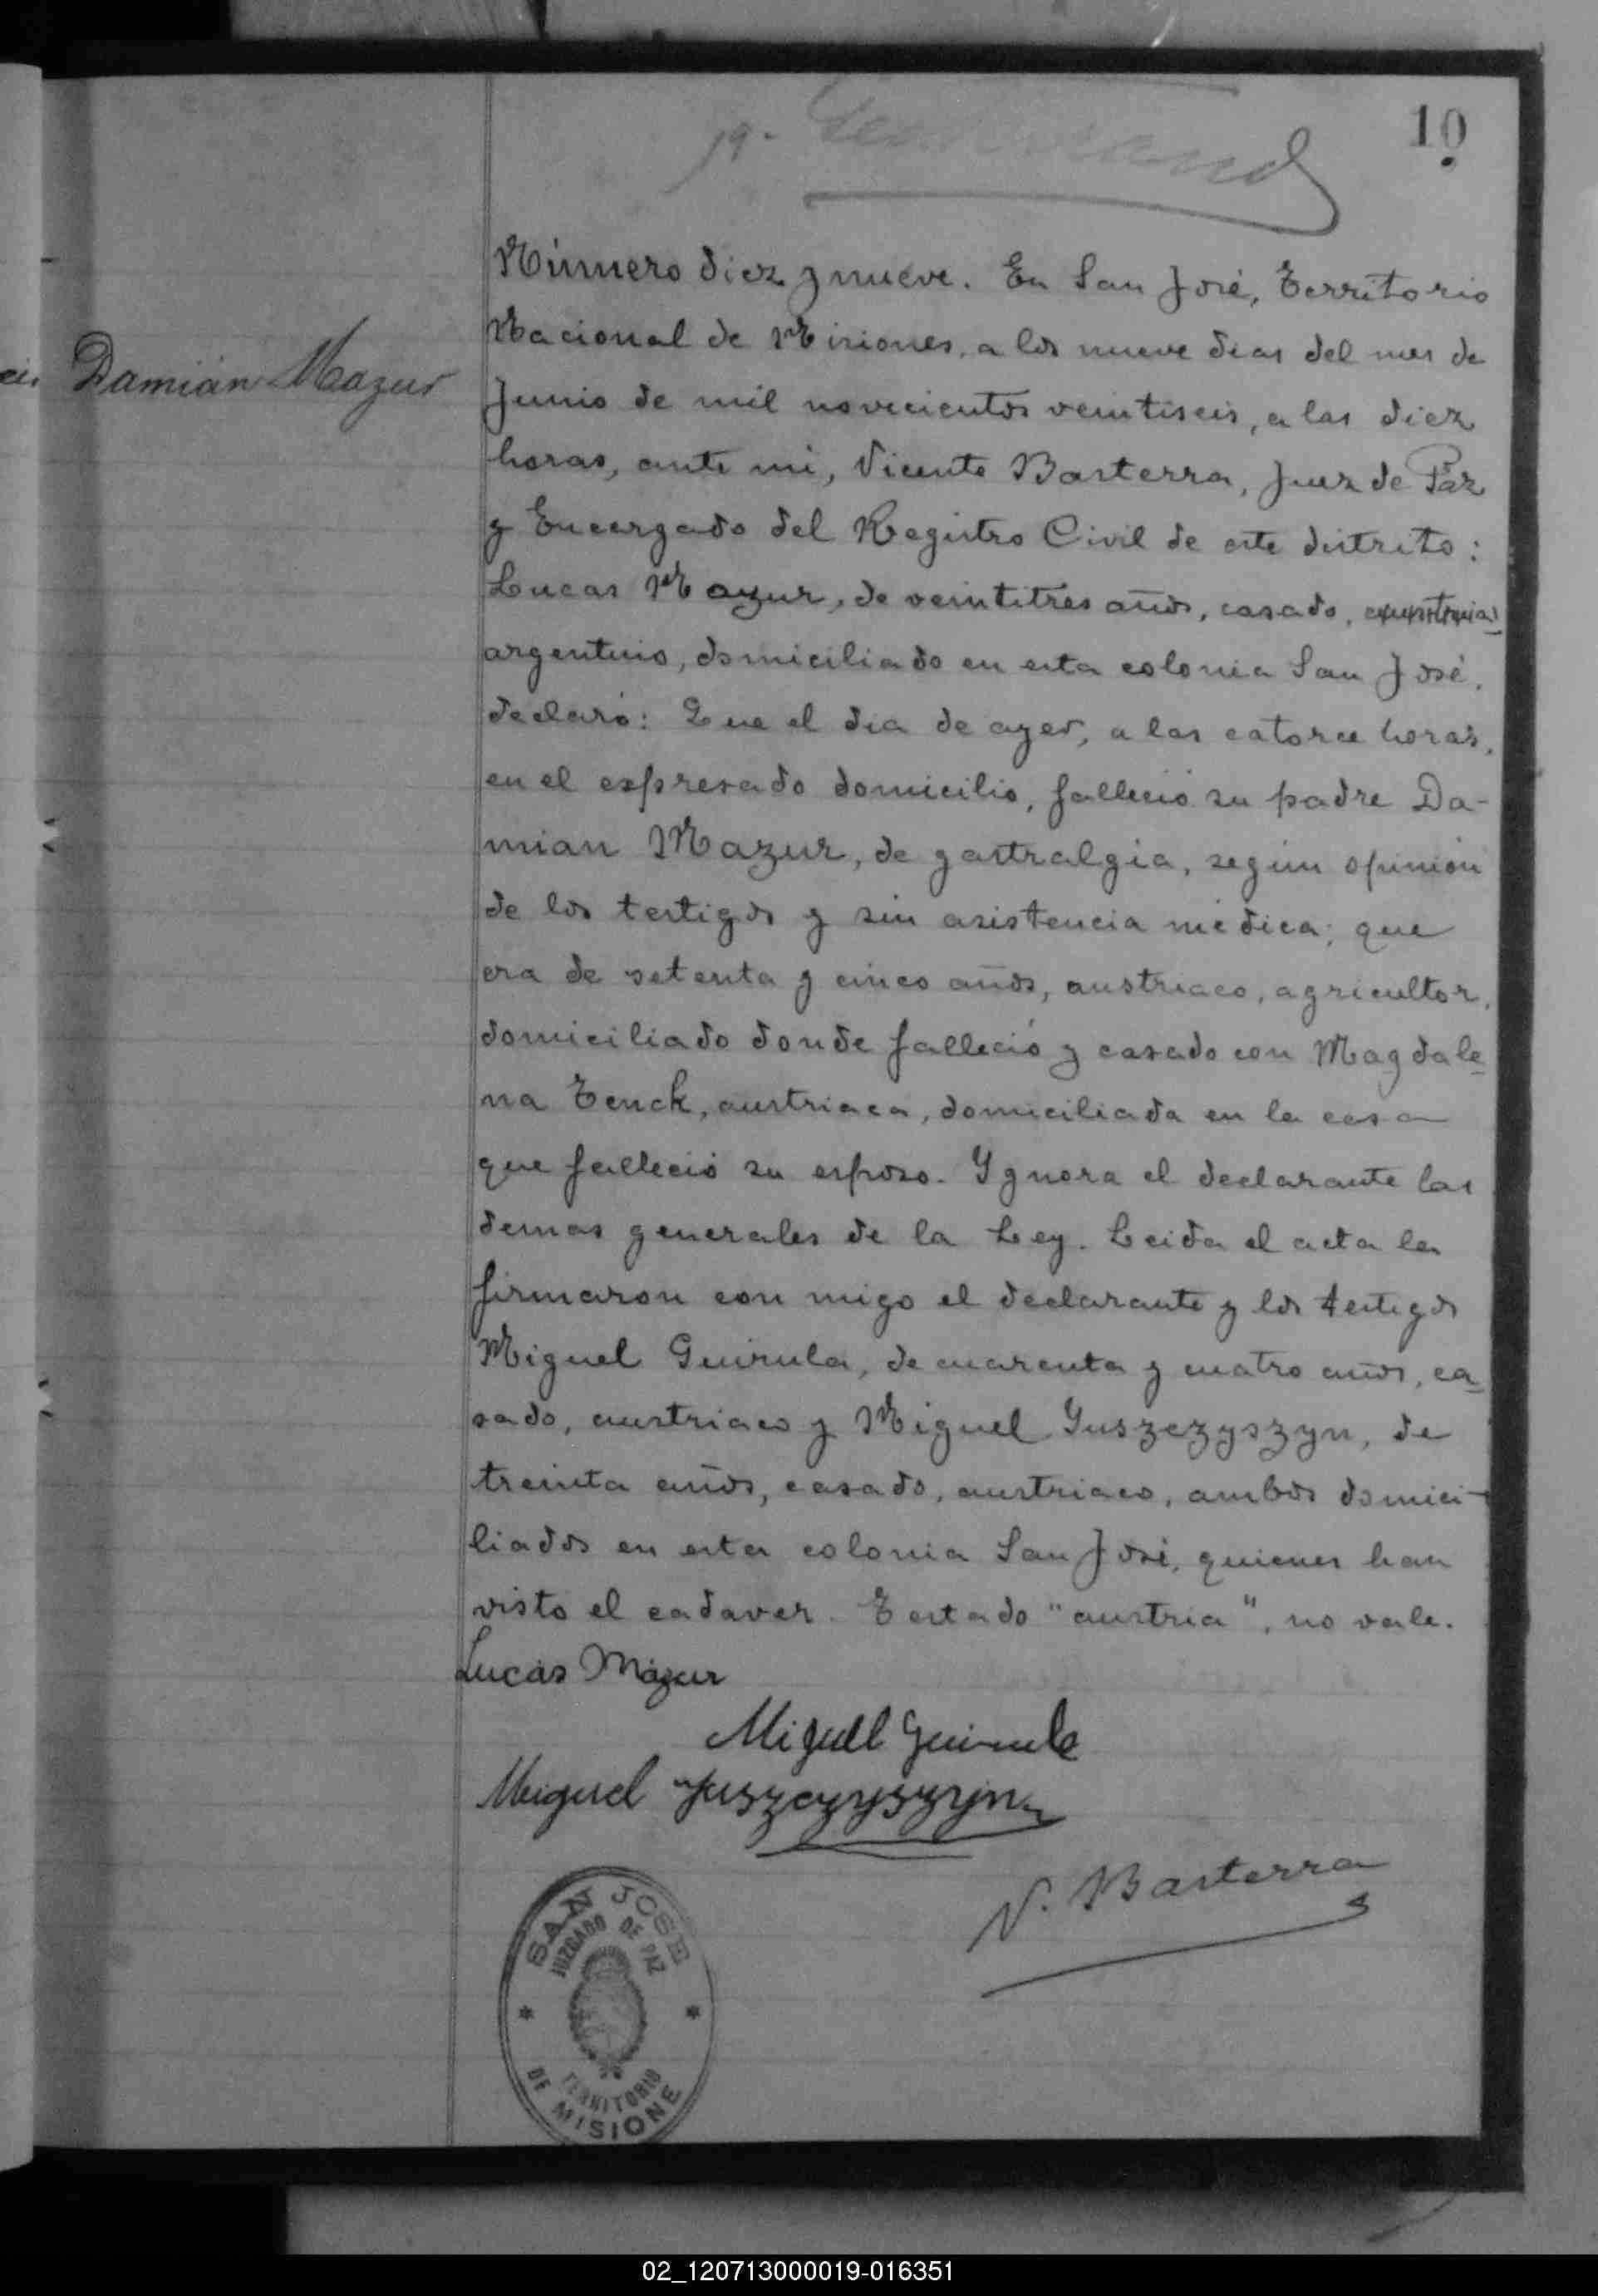 10
19.
Número diez y nueve. En San José, Territorio
Nacional de Misiones, a los nueve dias del mes de
Damián Mazur
Junio de mil novecientos veintiseis, a las diez
horas, ante mi, Vicente Basterra, Juez de Paz
y Encargado del Registro Civil de este distrito:
Lucas Mazur, de veintitres años, casado, austria
argentino, domiciliado en esta colonia San José,
declaró: Que el dia de ayer, a las catorce horas,
en el expresado domicilio, falleció su padre Da-
mian Mazur, de gastralgia, según opinión
de los testigos y sin asistencia médica; que
era de setenta y cinco años, austriaco, agricultor,
domiciliado donde falleció y casado con Magdale-
na Tenck, austriaca, domiciliada en la casa
que falleció su esposo. Ygnora el declarante las
demas generales de la Ley. Leida el acta la
firmaron con migo el declarante y los testigos
Miguel Guirula, de cuarenta y cuatro años, ca-
sado, austriaco y Miguel Yuszczyszyn, de
treinta años, casado, austriaco, ambos domici-
liados en esta colonia San José, quienes han
visto el cadaver. Testado "austria", no vale.
Lucas Mazur
Miguel Guirula
Miguel Juszczyszyn
V. Basterra
SAN JOSE
JUZGADO DE PAZ
TERRITORIO
DE MISIONE
02_120713000019-016351